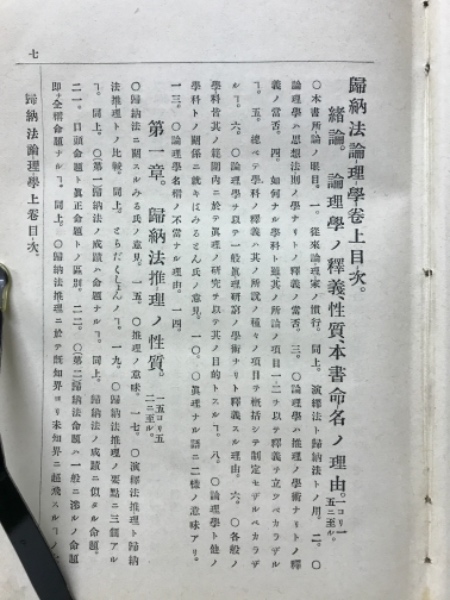 歸納法論理學卷上目次。
緒論。論理學ノ釋義、性質、本書命名ノ理由。一ヨリ一五ニ至ル。
〇本書所論ノ眼目。一。從來論理家ノ慣行。同上。演繹法ト歸納法トノ用。二。〇
論理學ハ思想法則ノ學ナリトノ釋義ノ當否。三。〇論理學ハ推理ノ學術ナリトノ釋
義ノ當否。四。如何ナル學科ト雖其ノ所論ノ項目一二ヲ以テ釋義ヲ立ツベカラザ
ルヿ。五。總ベテ學科ノ釋義ハ其ノ所說ノ種々ノ項目ヲ概括シテ制定セザルベカラザ
ルヿ。六。〇論理學ヲ以テ一般眞理研窮ノ學術ナリト釋義スル理由。六。〇各般ノ
學科皆其ノ範圍內ニ於テ眞理ノ研究ヲ以テ其ノ目的トスルヿ。八。〇論理學ト他ノ
學科トノ關係ニ就キはみるとん氏ノ意見。一〇。〇眞理ナル語ニ二樣ノ意味アリ。
一三。〇論理學名稱ノ不當ナル理由。一四
第一章。歸納法推理ノ性質。一五ヨリ五二ニ至ル。
〇歸納法ニ關スルみる氏ノ意見。一五。〇推理ノ意味。一七。〇演繹法推理ト歸納
法推理トノ比較。同上。とらだくしよんノヿ。一九。〇歸納法推理ノ要點ニ三個アル
ヿ。同上。〇(第一)歸納法ノ成蹟ハ命題ナルヿ。同上。歸納法ノ成蹟ニ似タル命題。
二一。口頭命題ト眞正命題トノ區別。二二。〇(第二)歸納法命題ハ一般ニ涉ルノ命題
即チ全稱命題ナルヿ。同上。〇歸納法推理ニ於テ旣知界ヨリ未知界ニ超飛スルヿノ
歸納法論理學上卷目次。
七